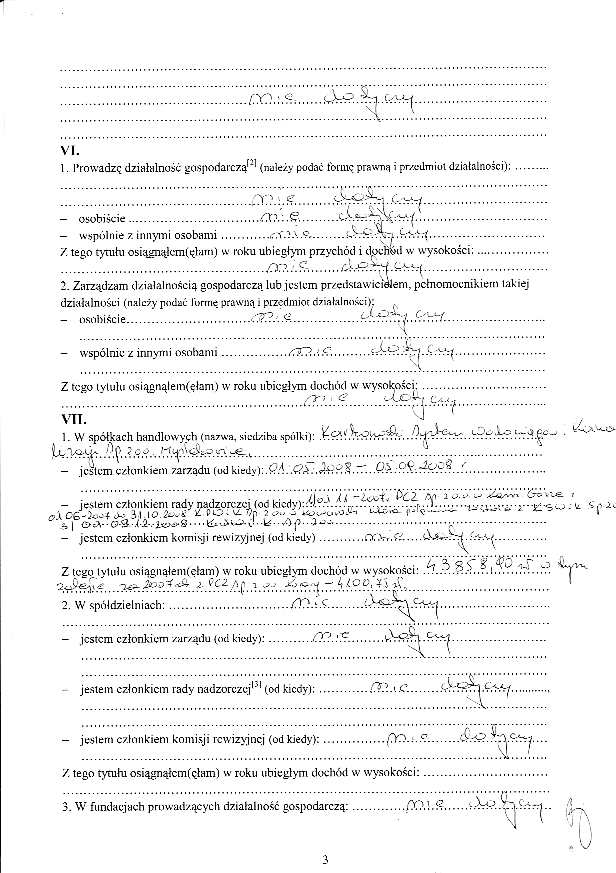 nie dotyczy
VI.
1. Prowadzę działalność gospodarczą[2] (należy podać formę prawną i przedmiot działalności): .........
nie dotyczy
– osobiście nie dotyczy
– wspólnie z innymi osobami nie dotyczy
Z tego tytułu osiągnąłem(ęłam) w roku ubiegłym przychód i dochód w wysokości: ..................
nie dotyczy
2. Zarządzam działalnością gospodarczą lub jestem przedstawicielem, pełnomocnikiem takiej
działalności (należy podać formę prawną i przedmiot działalności):
– osobiście nie dotyczy
– wspólnie z innymi osobami nie dotyczy
Z tego tytułu osiągnąłem(ęłam) w roku ubiegłym dochód w wysokości:
nie dotyczy
VII.
1. W spółkach handlowych (nazwa, siedziba spółki): System Wodociągów i Kana
lizacji Sp. zoo
– jestem członkiem zarządu (od kiedy): 01.05.2008 – 05.06.2008 r
– jestem członkiem rady nadzorczej (od kiedy): 11-2007. PCZ
01.06-2007 do 31.10.2008
od 08.12.2008
– jestem członkiem komisji rewizyjnej (od kiedy) nie dotyczy
Z tego tytułu osiągnąłem(ęłam) w roku ubiegłym dochód w wysokości: 43858,90 zł w tym
za 2007 z PCZ – 4100,75 zł.
2. W spółdzielniach: nie dotyczy
– jestem członkiem zarządu (od kiedy): nie dotyczy
– jestem członkiem rady nadzorczej[3] (od kiedy): nie dotyczy
– jestem członkiem komisji rewizyjnej (od kiedy): nie dotyczy
Z tego tytułu osiągnąłem(ęłam) w roku ubiegłym dochód w wysokości: ..............................
3. W fundacjach prowadzących działalność gospodarczą: nie dotyczy
3